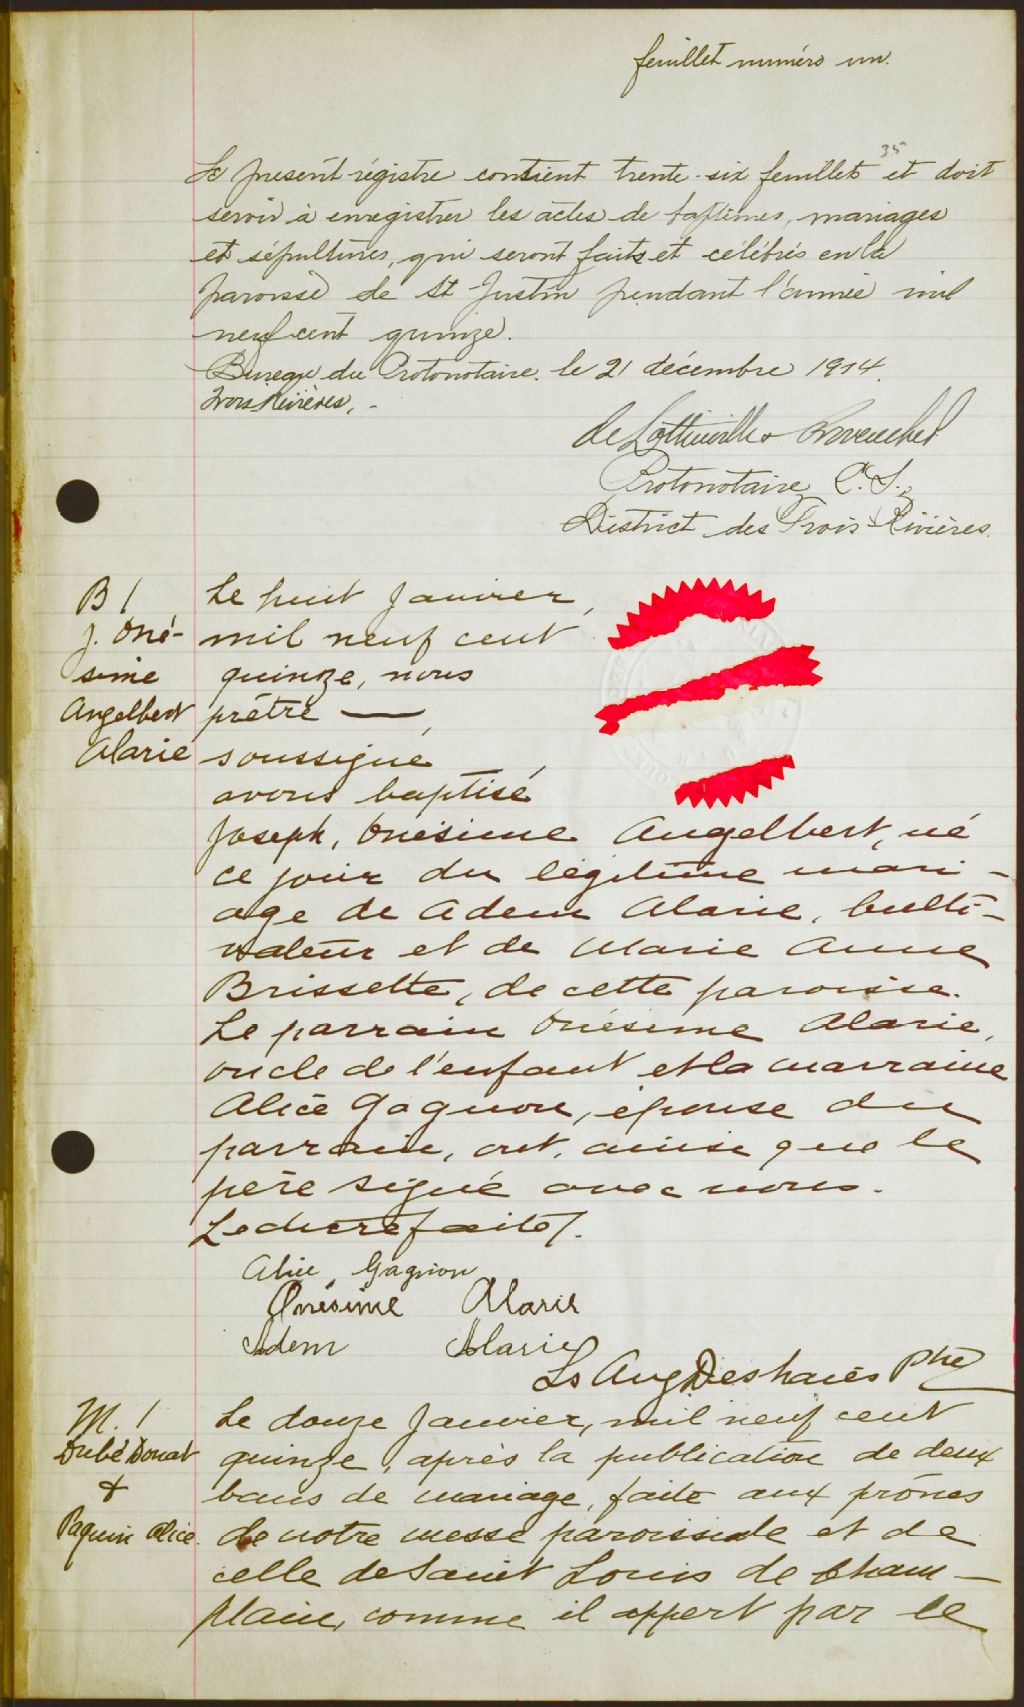 feuillet numéro un.
35
Le présent régistre contient trente-six feuillets et doit
servir à enregistrer les actes de baptêmes, mariages
et sépultures, qui seront faits et célébrés en la
paroisse de St Justin pendant l'année mil
neuf cent quinze.
Bureau du Protonotaire. le 21 décembre 1914.
Trois Rivières, -
de Lottinville
Protonotaire C. S.,
District des Trois-Rivières.
B 1
J. Oné-
sime
Angelbert
Alarie
Le huit Janvier,
mil neuf cent
quinze, nous
prêtre —
soussigné
avons baptisé
Joseph, Onésime Angelbert, né
ce jour du légitime mari-
age de Adem Alarie, culti-
vateur et de Marie Anne
Brissette, de cette paroisse.
Le parrain Onésime Alarie,
oncle de l'enfant et la marraine
Alice Gagnon, épouse du
parrain, ont, ainsi que le
père signé avec nous.
Lecture faite/.
Alice Gagnon
Onésime Alarie
Adem Alarie
Ls Aug Deshaies Ptre
M. 1
Dubé Donat
&
Paquin Alice.
Le douze Janvier, mil neuf cent
quinze, après la publication de deux
bans de mariage, faite aux prônes
de notre messe paroissiale et de
celle de Saint Louis de Cham-
plain, comme il appert par le